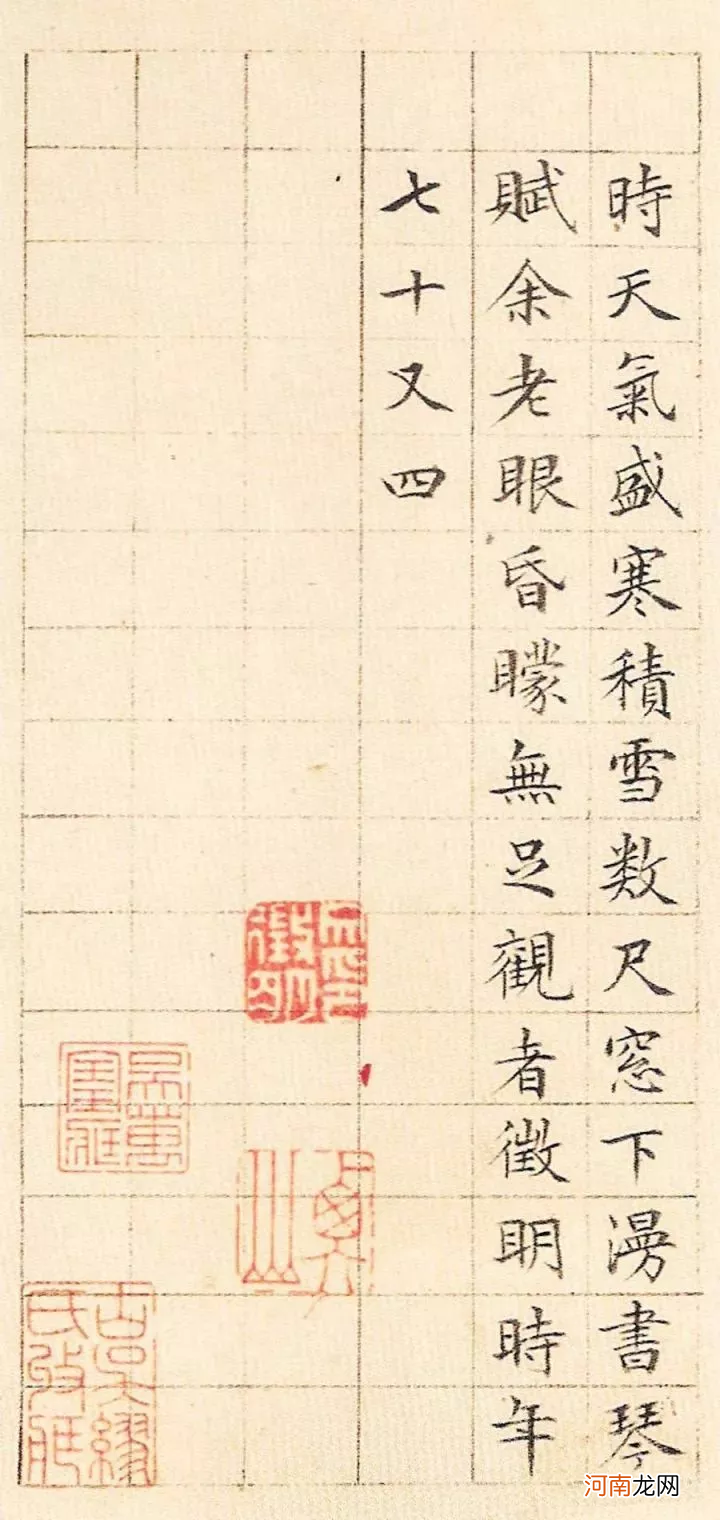 時天氣盛寒積雪数尺窓下漫書琴
賦余老眼昏矇無足觀者徵明時年
七十又四
徵明
河南龙网